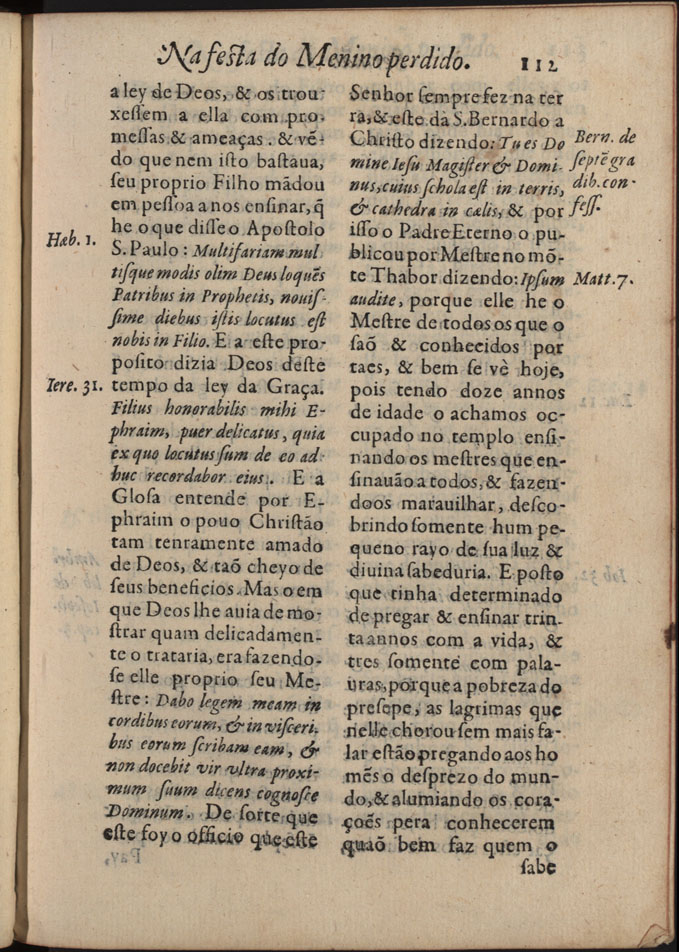 Na festa do Menino perdido. 112
a ley de Deos, & os trou-
xessem a ella com pro-
messas & ameaças. & vẽ-
do que nem isto bastaua,
seu proprio Filho mãdou
em pessoa a nos ensinar, q̃
he o que disse o Apostolo
Hæb. 1.
S. Paulo: Multifariam mul
tisque modis olim Deus loquẽs
Patribus in Prophetis, nouis-
sime diebus istis locutus est
nobis in Filio. E a este pro-
posito dizia Deos deste
Iere. 31.
tempo da ley da Graça.
Filius honorabilis mihi E-
phraim, puer delicatus, quia
ex quo locutus sum de eo ad
huc recordabor eius. E a
Glosa entende por E-
phraim o pouo Christão
tam tenramente amado
de Deos, & taõ cheyo de
seus beneficios. Mas o em
que Deos lhe auia de mo-
strar quam delicadamen-
te o trataria, era fazendo-
se elle proprio seu Me-
stre: Dabo legem meam in
cordibus eorum, & in visceri-
bus eorum scribam eam, &
non docebit vir vltra proxi-
mum suum dicens cognosce
Dominum. De sorte que
este foy o officio que este
Senhor sempre fez na ter
ra, & este dà S. Bernardo a
Christo dizendo: Tu es Do
mine Iesu Magister & Domi-
nus, cuius schola est in terris,
& cathedra in cælis, & por
Bern. de
septẽ gra
dib. con-
fess.
isso o Padre Eterno o pu-
blicou por Mestre no mõ-
te Thabor dizendo: Ipsum
Matt. 7.
audite, porque elle he o
Mestre de todos os que o
saõ & conhecidos por
taes, & bem se vê hoje,
pois tendo doze annos
de idade o achamos oc-
cupado no templo ensi-
nando os mestres que en-
sinauão a todos, & fazen-
doos marauilhar, desco-
brindo somente hum pe-
queno rayo de sua luz &
diuina sabeduria. E posto
que tinha determinado
de pregar & ensinar trin-
ta annos com a vida, &
tres somente com pala-
uras, porque a pobreza do
presepe, as lagrimas que
nelle chorou sem mais fa-
lar estão pregando aos ho
mẽs o desprezo do mun-
do, & alumiando os cora-
çoẽs pera conhecerem
quaõ bem faz quem o
sabe